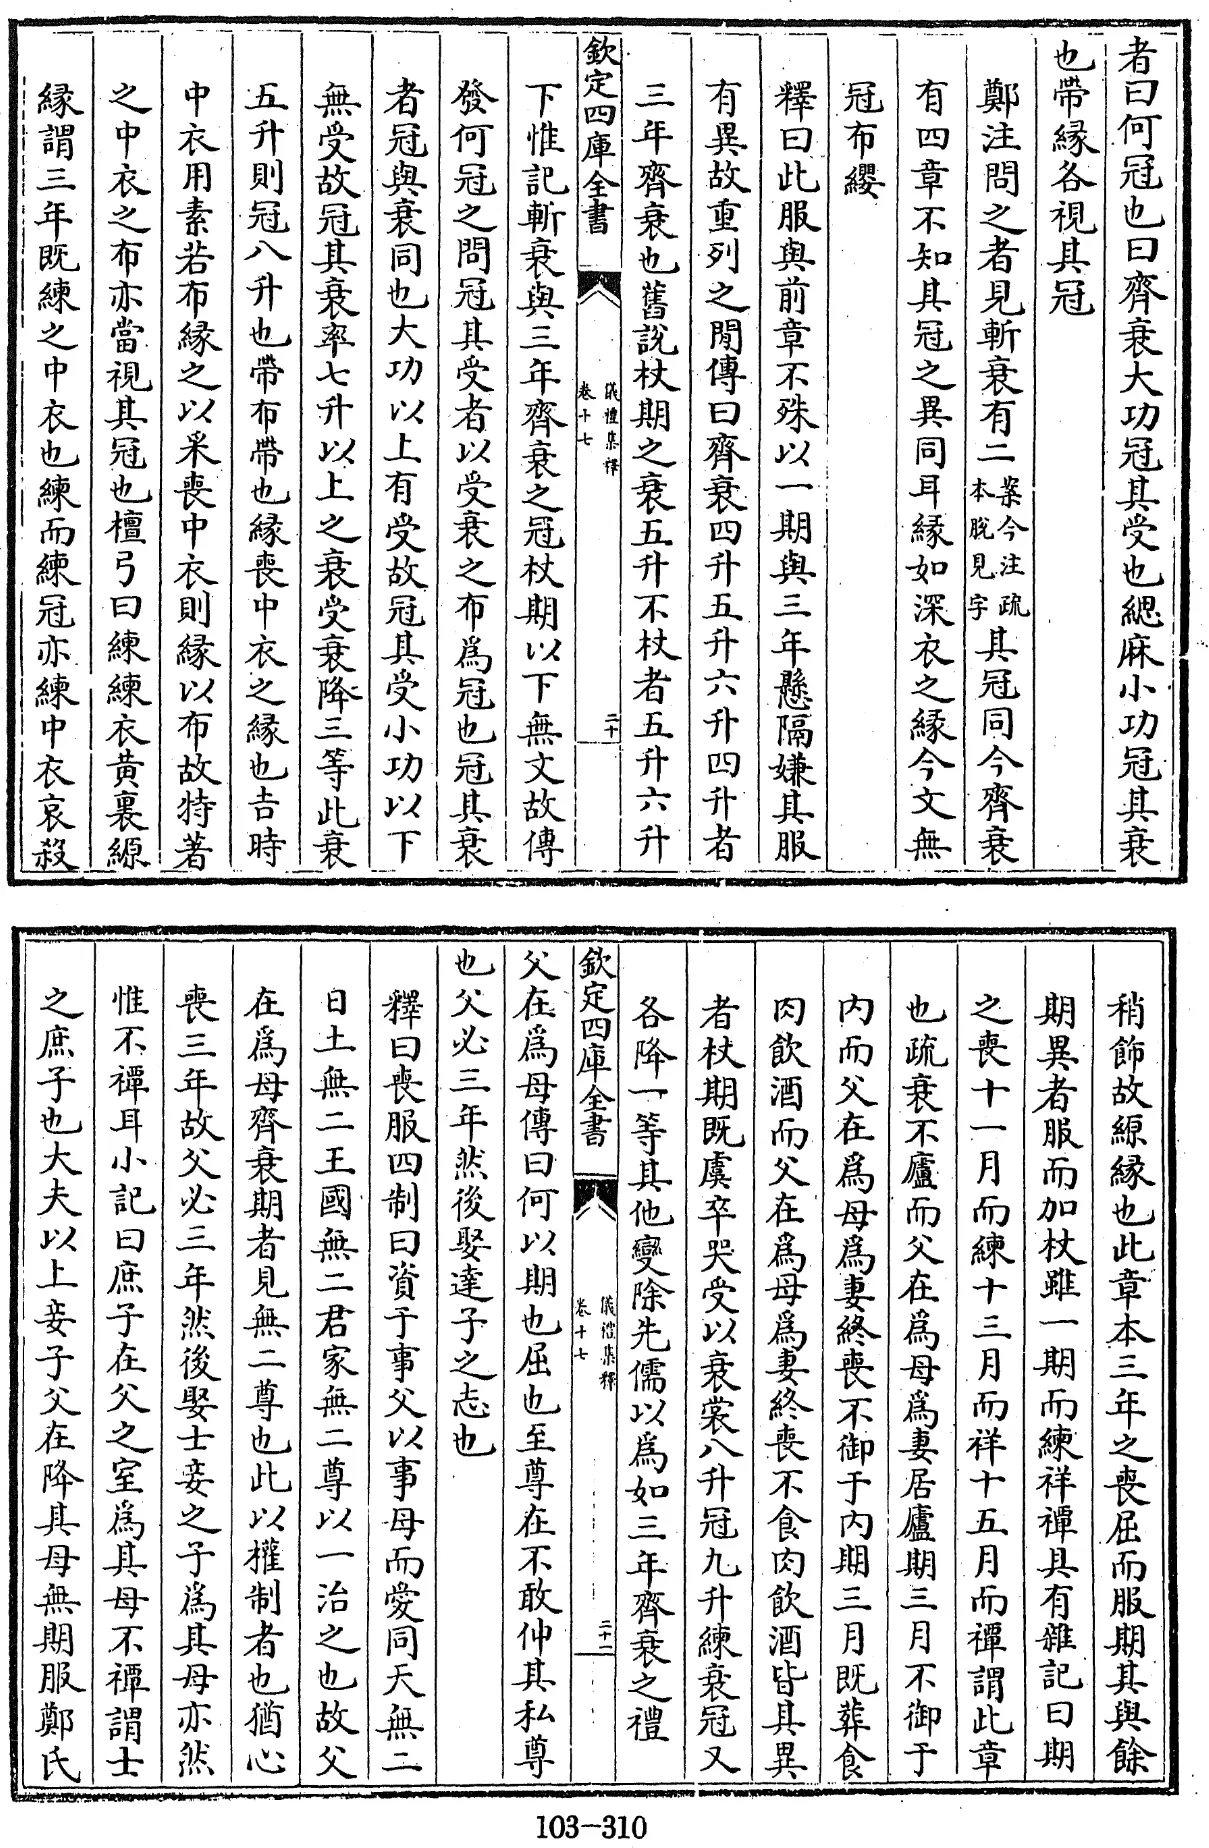 者曰何冠也曰齊衰大功冠其受也緦麻小功冠其衰
也帶緣各視其冠
鄭注問之者見斬衰有二案今注疏本脫見字其冠同今齊衰
有四章不知其冠之異同耳緣如深衣之緣今文無
冠布纓
釋曰此服與前章不殊以一期與三年懸隔嫌其服
有異故重列之閒傳曰齊衰四升五升六升四升者
三年齊衰也舊說杖期之衰五升不杖者五升六升
欽定四庫全書
儀禮集釋
卷十七
二十
下惟記斬衰與三年齊衰之冠杖期以下無文故傳
發何冠之問冠其受者以受衰之布爲冠也冠其衰
者冠與衰同也大功以上有受故冠其受小功以下
無受故冠其衰率七升以上之衰受衰降三等此衰
五升則冠八升也帶布帶也緣喪中衣之緣也吉時
中衣用素若布緣之以采喪中衣則緣以布故特著
之中衣之布亦當視其冠也檀弓曰練練衣黄裏縓
緣謂三年既練之中衣也練而練冠亦練中衣哀殺
稍飾故縓緣也此章本三年之喪屈而服期其與餘
期異者服而加杖雖一期而練祥禫具有雜記曰期
之喪十一月而練十三月而祥十五月而禫謂此章
也疏衰不廬而父在爲母爲妻居廬期三月不御于
内而父在爲母爲妻終喪不御于内期三月既葬食
肉飲酒而父在爲母爲妻終喪不食肉飲酒皆其異
者杖期既虞卒哭受以衰裳八升冠九升練衰冠又
各降一等其他變除先儒以爲如三年齊衰之禮
欽定四庫全書
儀禮集釋
卷十七
二十一
父在爲母傳曰何以期也屈也至尊在不敢伸其私尊
也父必三年然後娶達子之志也
釋曰喪服四制曰資于事父以事母而愛同天無二
日土無二王國無二君家無二尊以一治之也故父
在爲母齊衰期者見無二尊也此以權制者也猶心
喪三年故父必三年然後娶士妾之子爲其母亦然
惟不禫耳小記曰庶子在父之室爲其母不禫謂士
之庶子也大夫以上妾子父在降其母無期服鄭氏
103-310